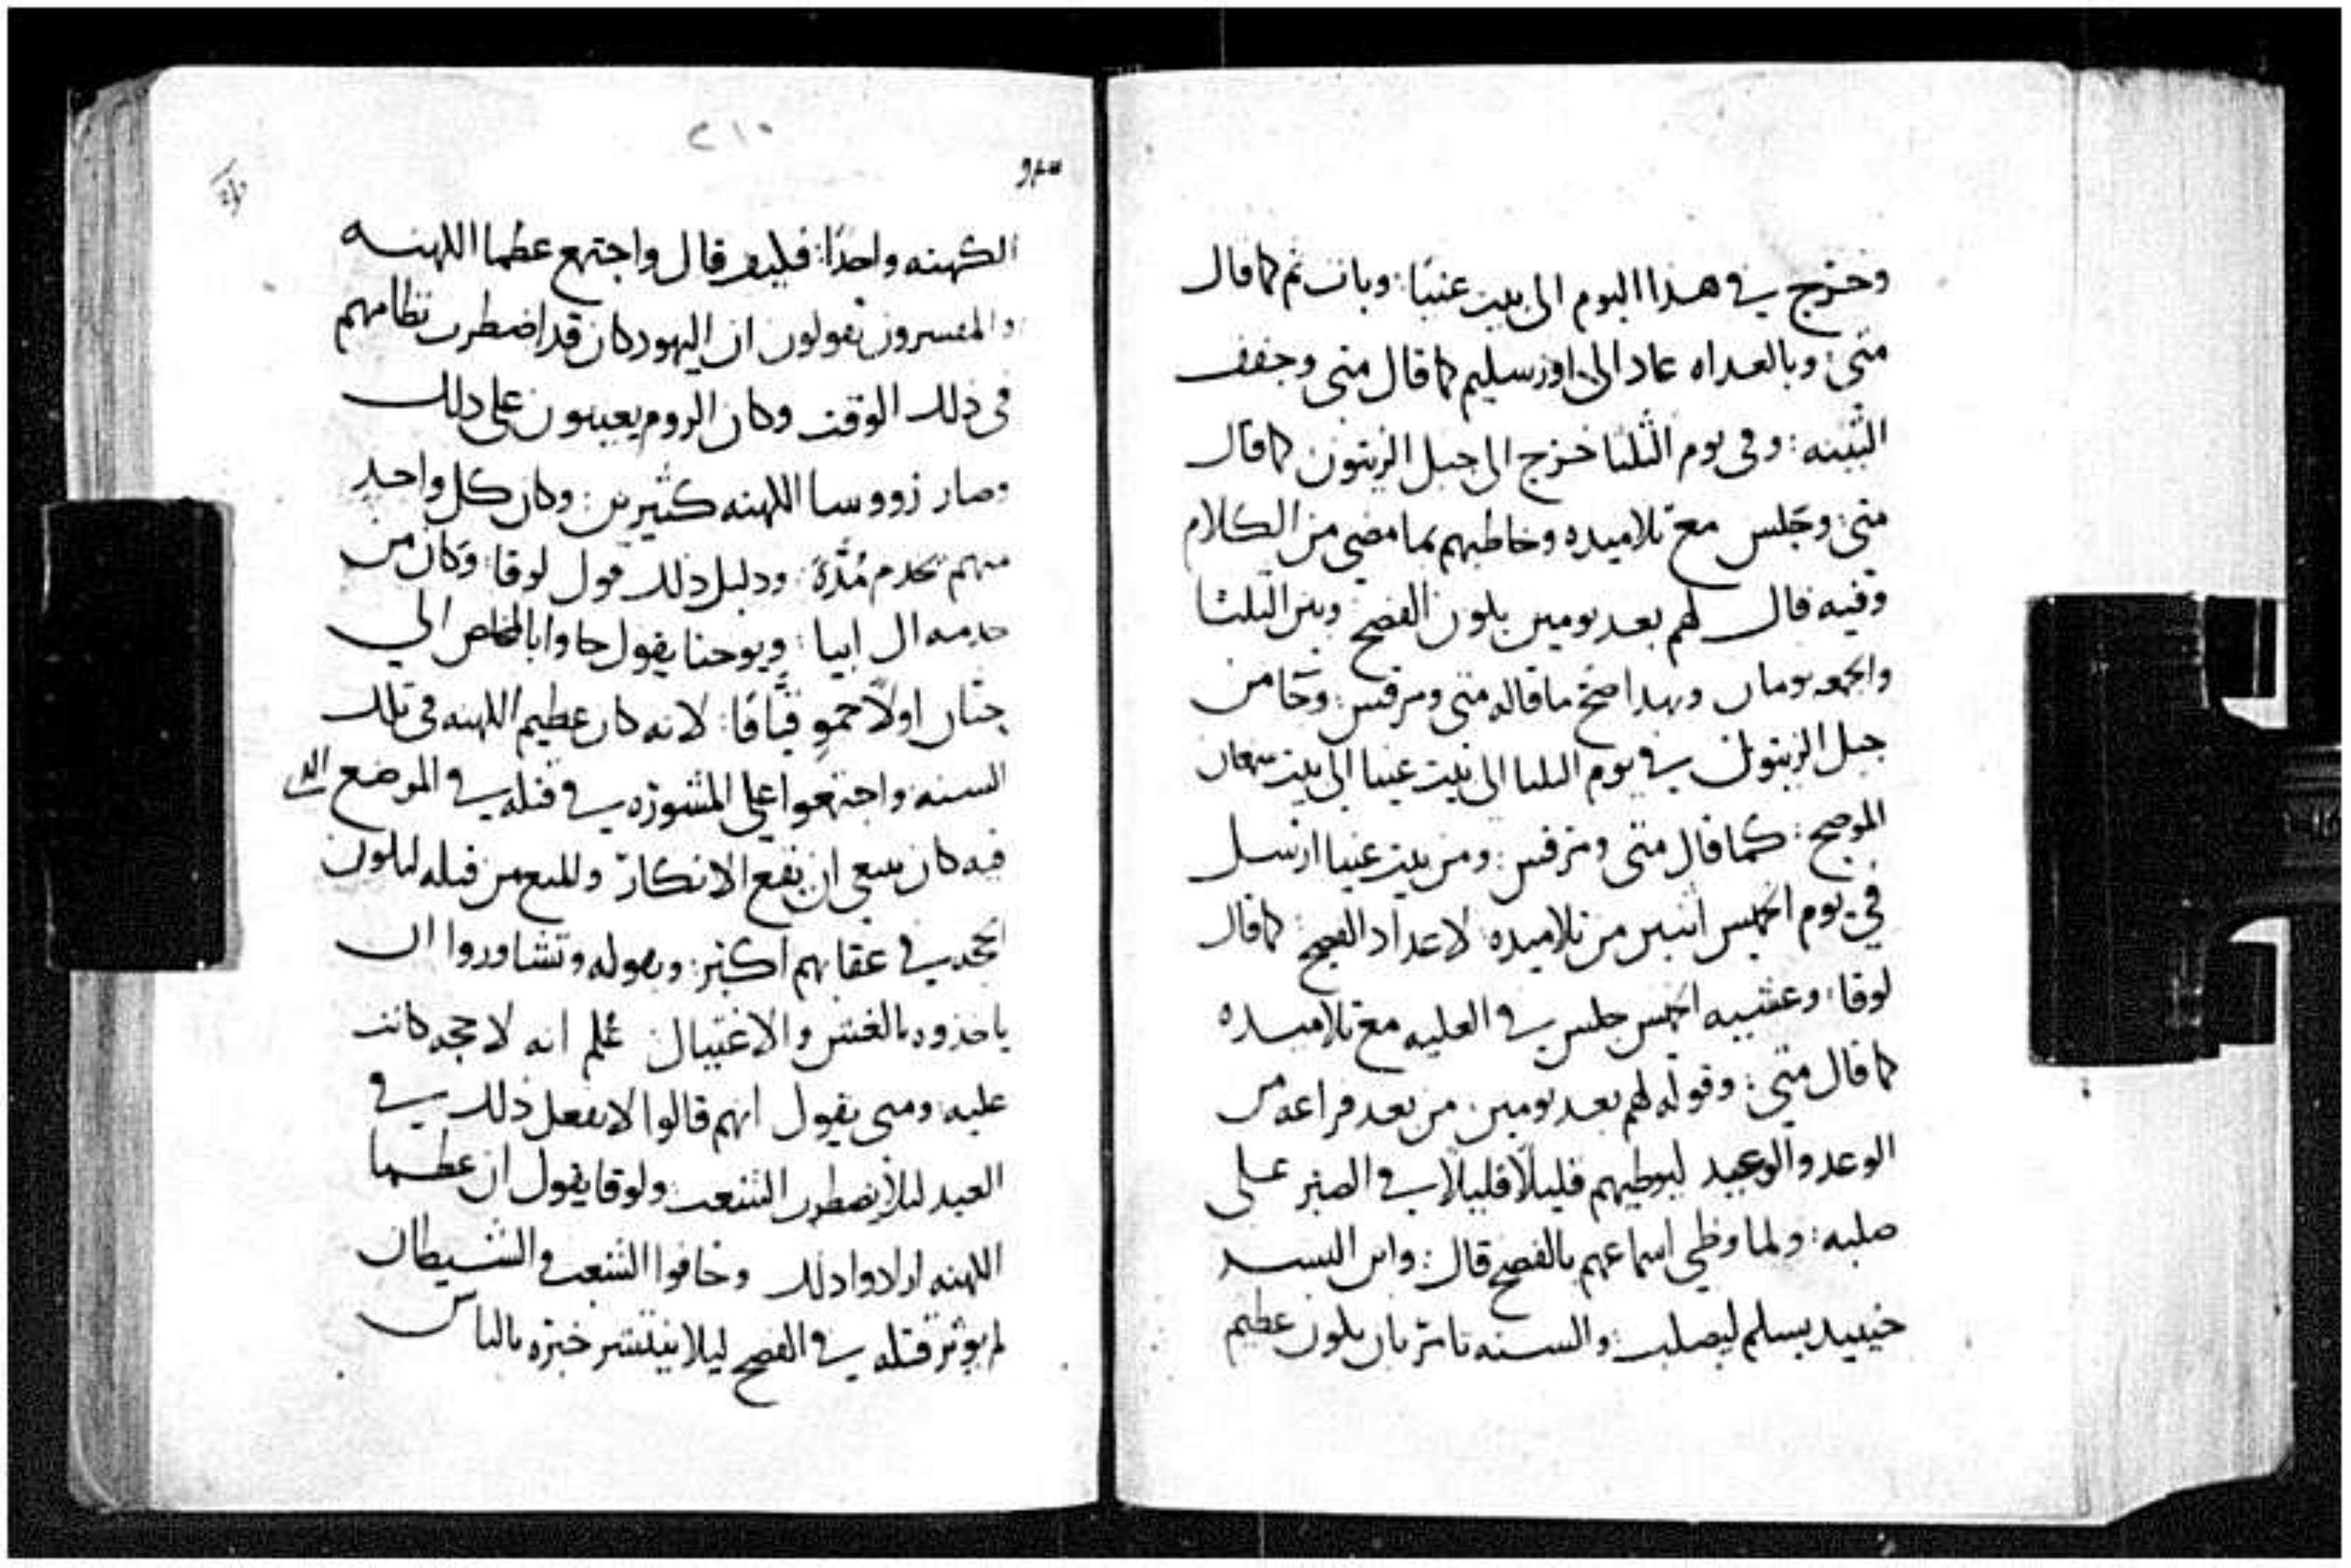 وخرج في هذا اليوم الى بيت عنيا: وبات ثم كما قال
متى: وبالغداه عاد الى اورسليم كما قال متى وجفف
التينه: وفي يوم الثلثا خرج الى جبل الزيتون كما قال
متى: وجلس مع تلاميده وخاطبهم بما مضى من الكلام
وفيه قال لهم بعد يومين يكون الفصح وبين الثلثا
والجمعه يومان وبهدا صح ما قاله متى ومرقس: وجا من
جبل الزيتون في يوم الثلثا الى بيت عنيا الى بيت سمعان
كما قال متى ومرقس: ومن بيت عنيا ارسل
في يوم الخميس اثنين من تلاميده: لاعداد الفصح: كما قال
لوقا: وعشيه الخميس جلس في العليه مع تلاميده
كما قال متى: وقوله لهم بعد يومين: من بعد فراغه من
الوعد والوعيد ليوطيهم قليلًا قليلًا في الصبر على
صلبه: ولما وطي اسماعهم بالفصح قال: وابن البشر
حينيد يسلم ليصلب: والسنه تامر بان يكون عظيم
٢١٠
الكهنه واحدًا: فكيف قال واجتمع عظما الكهنه
والمفسرون يقولون ان اليهود كان قد اضطرب نظامهم
في ذلك الوقت وكان الروم يعينون على ذلك
وصار رووسا الكهنه كثيرين: وكان كل واحد
منهم يخدم مُدَّة: ودليل ذلك قول لوقا: وكان من
خدمه ال ابيا: ويوحنا يقول جاوا بالمخلص الى
حنّان اولًا حمو قيَّافا: لانه كان عظيم الكهنه في تلك
السنه: واجتمعوا على المشوره في قتله في الموضع الدي
فيه كان ينبغي ان يقع الانكار والمنع من قتله ليكون
الحجه في عقابهم اكثر: وبقوله وتشاوروا ان
ياخذوه بالغش والاغتيال علم انه لا حجه كانت
عليه: ومتى يقول انهم قالوا لا نفعل ذلك في
العيد ليلا يضطرب الشعب: ولوقا يقول ان عظما
الكهنه ارادوا ذلك وخافوا الشعب والشيطان
لم يوثر قتله في الفصح ليلا ينتشر خبره بالناس